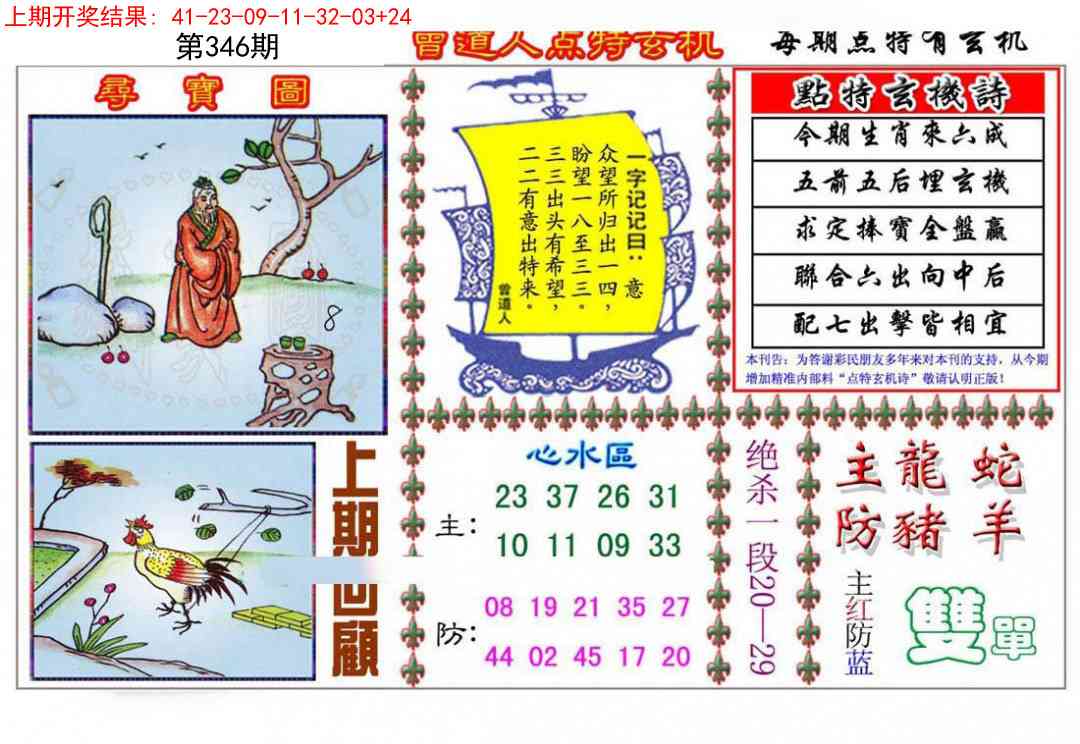 上期开奖结果: 41-23-09-11-32-03+24
第346期
曾道人点特玄机
每期点特有玄机
尋寶圖
8
一字记记曰：意
众望所归出一四，
盼望一八至三三。
三三出头有希望，
二二有意出特来。
曾道人
點特玄機詩
今期生肖來六成
五前五后埋玄機
求定捧寶全盤贏
聯合六出向中后
配七出擊皆相宜
本刊告：为答谢彩民朋友多年来对本刊的支持，从今期
增加精准内部料“点特玄机诗”敬请认明正版！
上期回顧
心水區
主：
23 37 26 31
10 11 09 33
防：
08 19 21 35 27
44 02 45 17 20
绝杀一段20—29
主龍 蛇
防豬 羊
主红防蓝
雙單